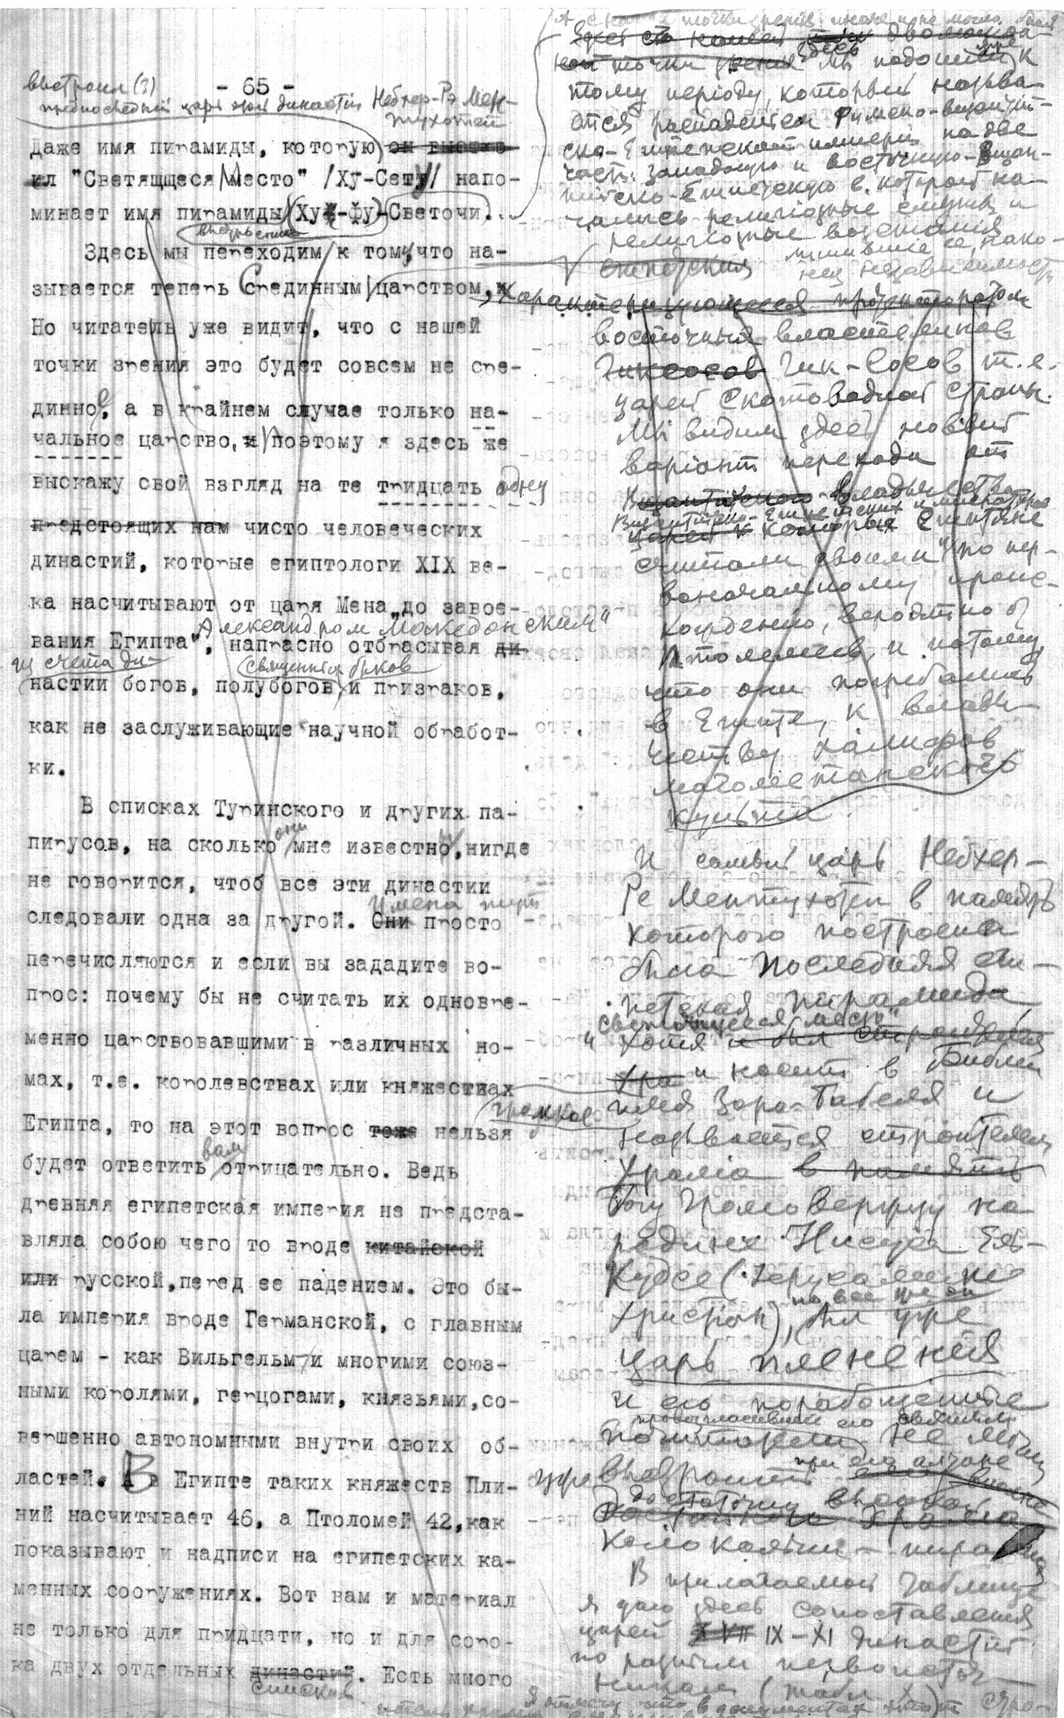 - 65 -
выстроил (?)
предпоследний царь этой династии Небхер-Рэ Мен-
тухотеп
даже имя пирамиды, которую он выстро-
ил "Светящщеся Место" /Ху-Сету/ напо-
минает имя пирамиды Ху-фу-Светочи.
Здесь мы переходим к тому, что на-
зывается теперь Срединным царством,
Но читатель уже видит, что с нашей
точки зрения это будет совсем не сре-
динное, а в крайнем случае только на-
чальное царство, и поэтому я здесь же
выскажу свой взгляд на те тридцать одну
предстоящих нам чисто человеческих
династий, которые египтологи XIX ве-
ка насчитывают от царя Мена "до завое-
Александром Македонским"
вания Египта", напрасно отбрасывая ди-
из счета ди- священных быков
настии богов, полубогов и призраков,
как не заслуживающие научной обработ-
ки.
В списках Туринского и других па-
пирусов, на сколько они мне известны, нигде
не говорится, чтоб все эти династии
Имена тут
следовали одна за другой. Они просто
перечисляются и если вы зададите во-
прос: почему бы не считать их одновре-
менно царствовавшими в различных но-
мах, т.е. королевствах или княжествах
Египта, то на этот вопрос тоже нельзя
будет ответить вам отрицательно. Ведь
древняя египетская империя не предста-
вляла собою чего то вроде китайской
или русской, перед ее падением. Это бы-
ла империя вроде Германской, с главным
царем - как Вильгельм и многими союз-
ными королями, герцогами, князьями, со-
вершенно автономными внутри своих об-
ластей. В Египте таких княжеств Пли-
ний насчитывает 46, а Птоломей 42, как
показывают и надписи на египетских ка-
менных сооружениях. Вот вам и материал
не только для тридцати, но и для соро-
ка двух отдельных династий. Есть много
списков
здесь мы подошли к
тому періоду, который называ-
ется распадением Римско-византий-
ско-Египетской империи на две
части: западную и восточную-Визан-
тийско-Египетскую в которой на-
чались религиозные смуты и
религиозные возстания
египетския
характеризующееся протекторатом
восточных властелинов
Гиксосов Гик-Сосов т.е.
царей Скотоводной страны.
Мы видим здесь новый
варіант перехода от
Византийского владычества
Византийско-Египетских императоров
царей которых Египтяне
считали своими "по пер-
воначальному проис-
хождению, вероятно от
Птолемеев, и потому
что они погребались
в Египте, к влады-
честву халифов
магометанского
культа.
И самый царь Небхер-
Ре Ментухотеп в память
которого построена
была последняя еги-
петская пирамида
"светящееся место"
хотя
и носит в Библии
имя Заро-Бабеля и
громкое
называется строителем
Храма в память
Богу Громовержцу на
родине Иисуса Ель-
Кудсе (Иерусалиме
Христом), но все же он был уже
царь пленения
и его порабощенные
провозгласившие его святым
почитатели не могли
уже выстроить при его алтаре
достаточно высокой
достойного храма
колокольни-пирамиды
В прилагаемой таблице
я даю здесь сопоставления
царей XVII IX-XI династий
по разным первоисточ-
никам (табл. X)